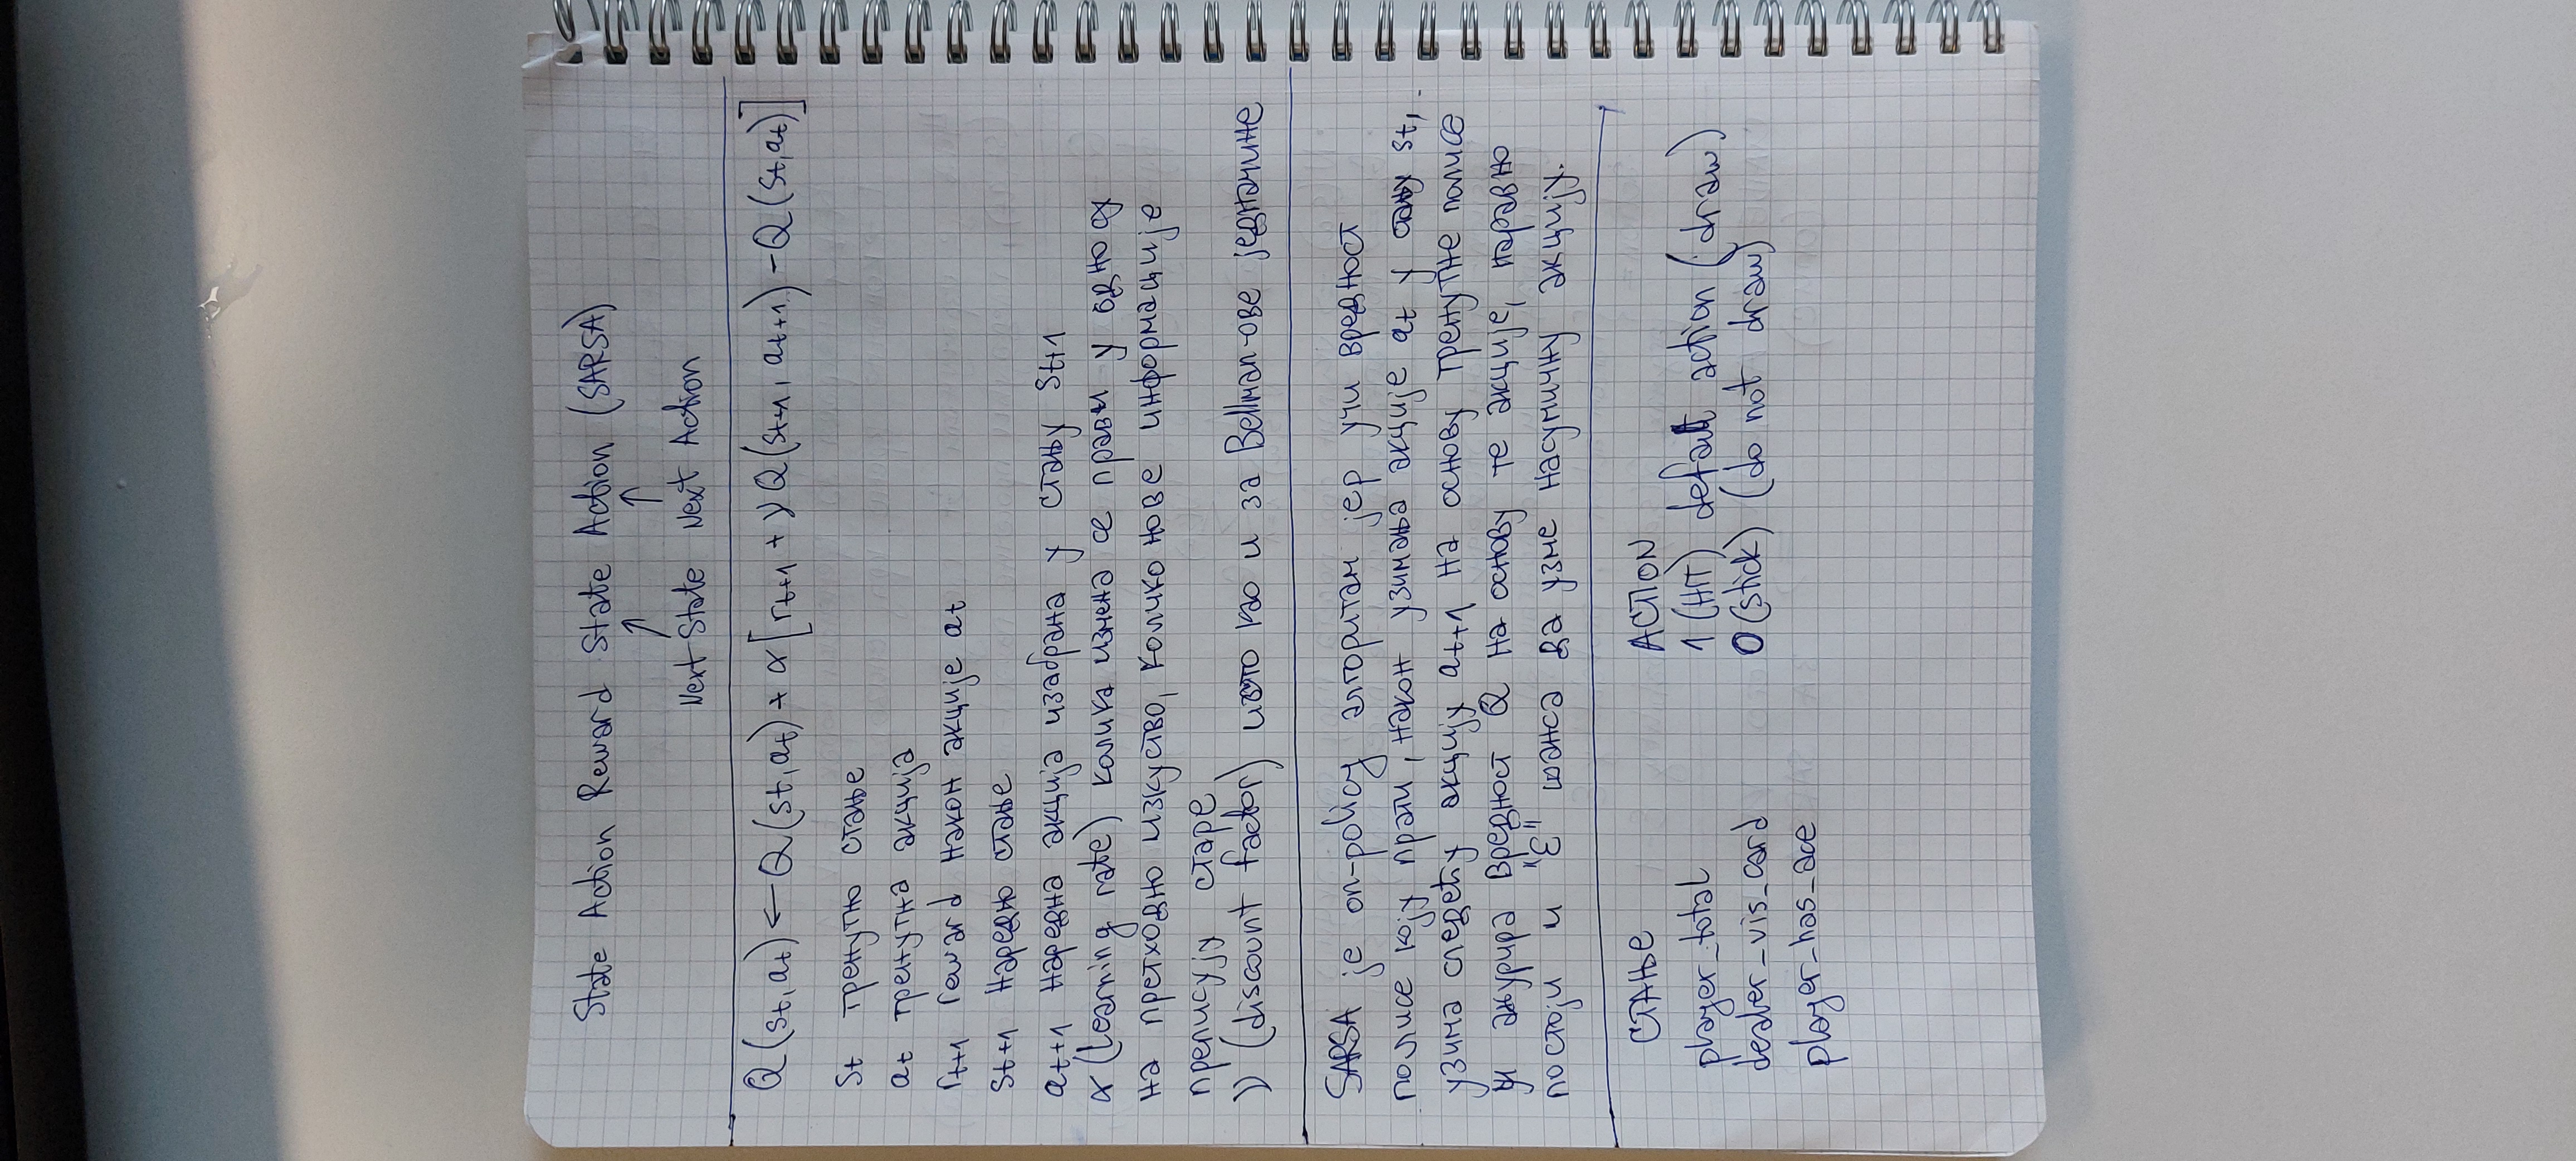 State Action Reward State Action (SARSA)
↑ ↑
Next State Next Action
Q(st, at) ← Q(st, at) + α[rt+1 + γQ(st+1, at+1) - Q(st, at)]
st тренутно стање
at тренутна акција
rt+1 reward након акције at
st+1 Наредно стање
at+1 наредна акција изабрана у стању st+1
α (Learning rate) колика измена се прави у односу
на претходно изкуство, колико нове информације
преписују старе
γ (discount factor) исто као и за Bellman-ове једначине
SARSA је on-policy алгоритам јер учи вредност
полисе коју прати, након узимања акције at у стању st,
узима следећу акцију at+1 на основу тренутне полисе
и ажурира вредност Q на основу те акције, наравно
постоји и "ε" шанса да узме насумичну акцију.
СТАЊЕ ACTION
player_total 1 (HIT) default action (draw)
dealer_vis_card 0 (stick) (do not draw)
player_has_ace